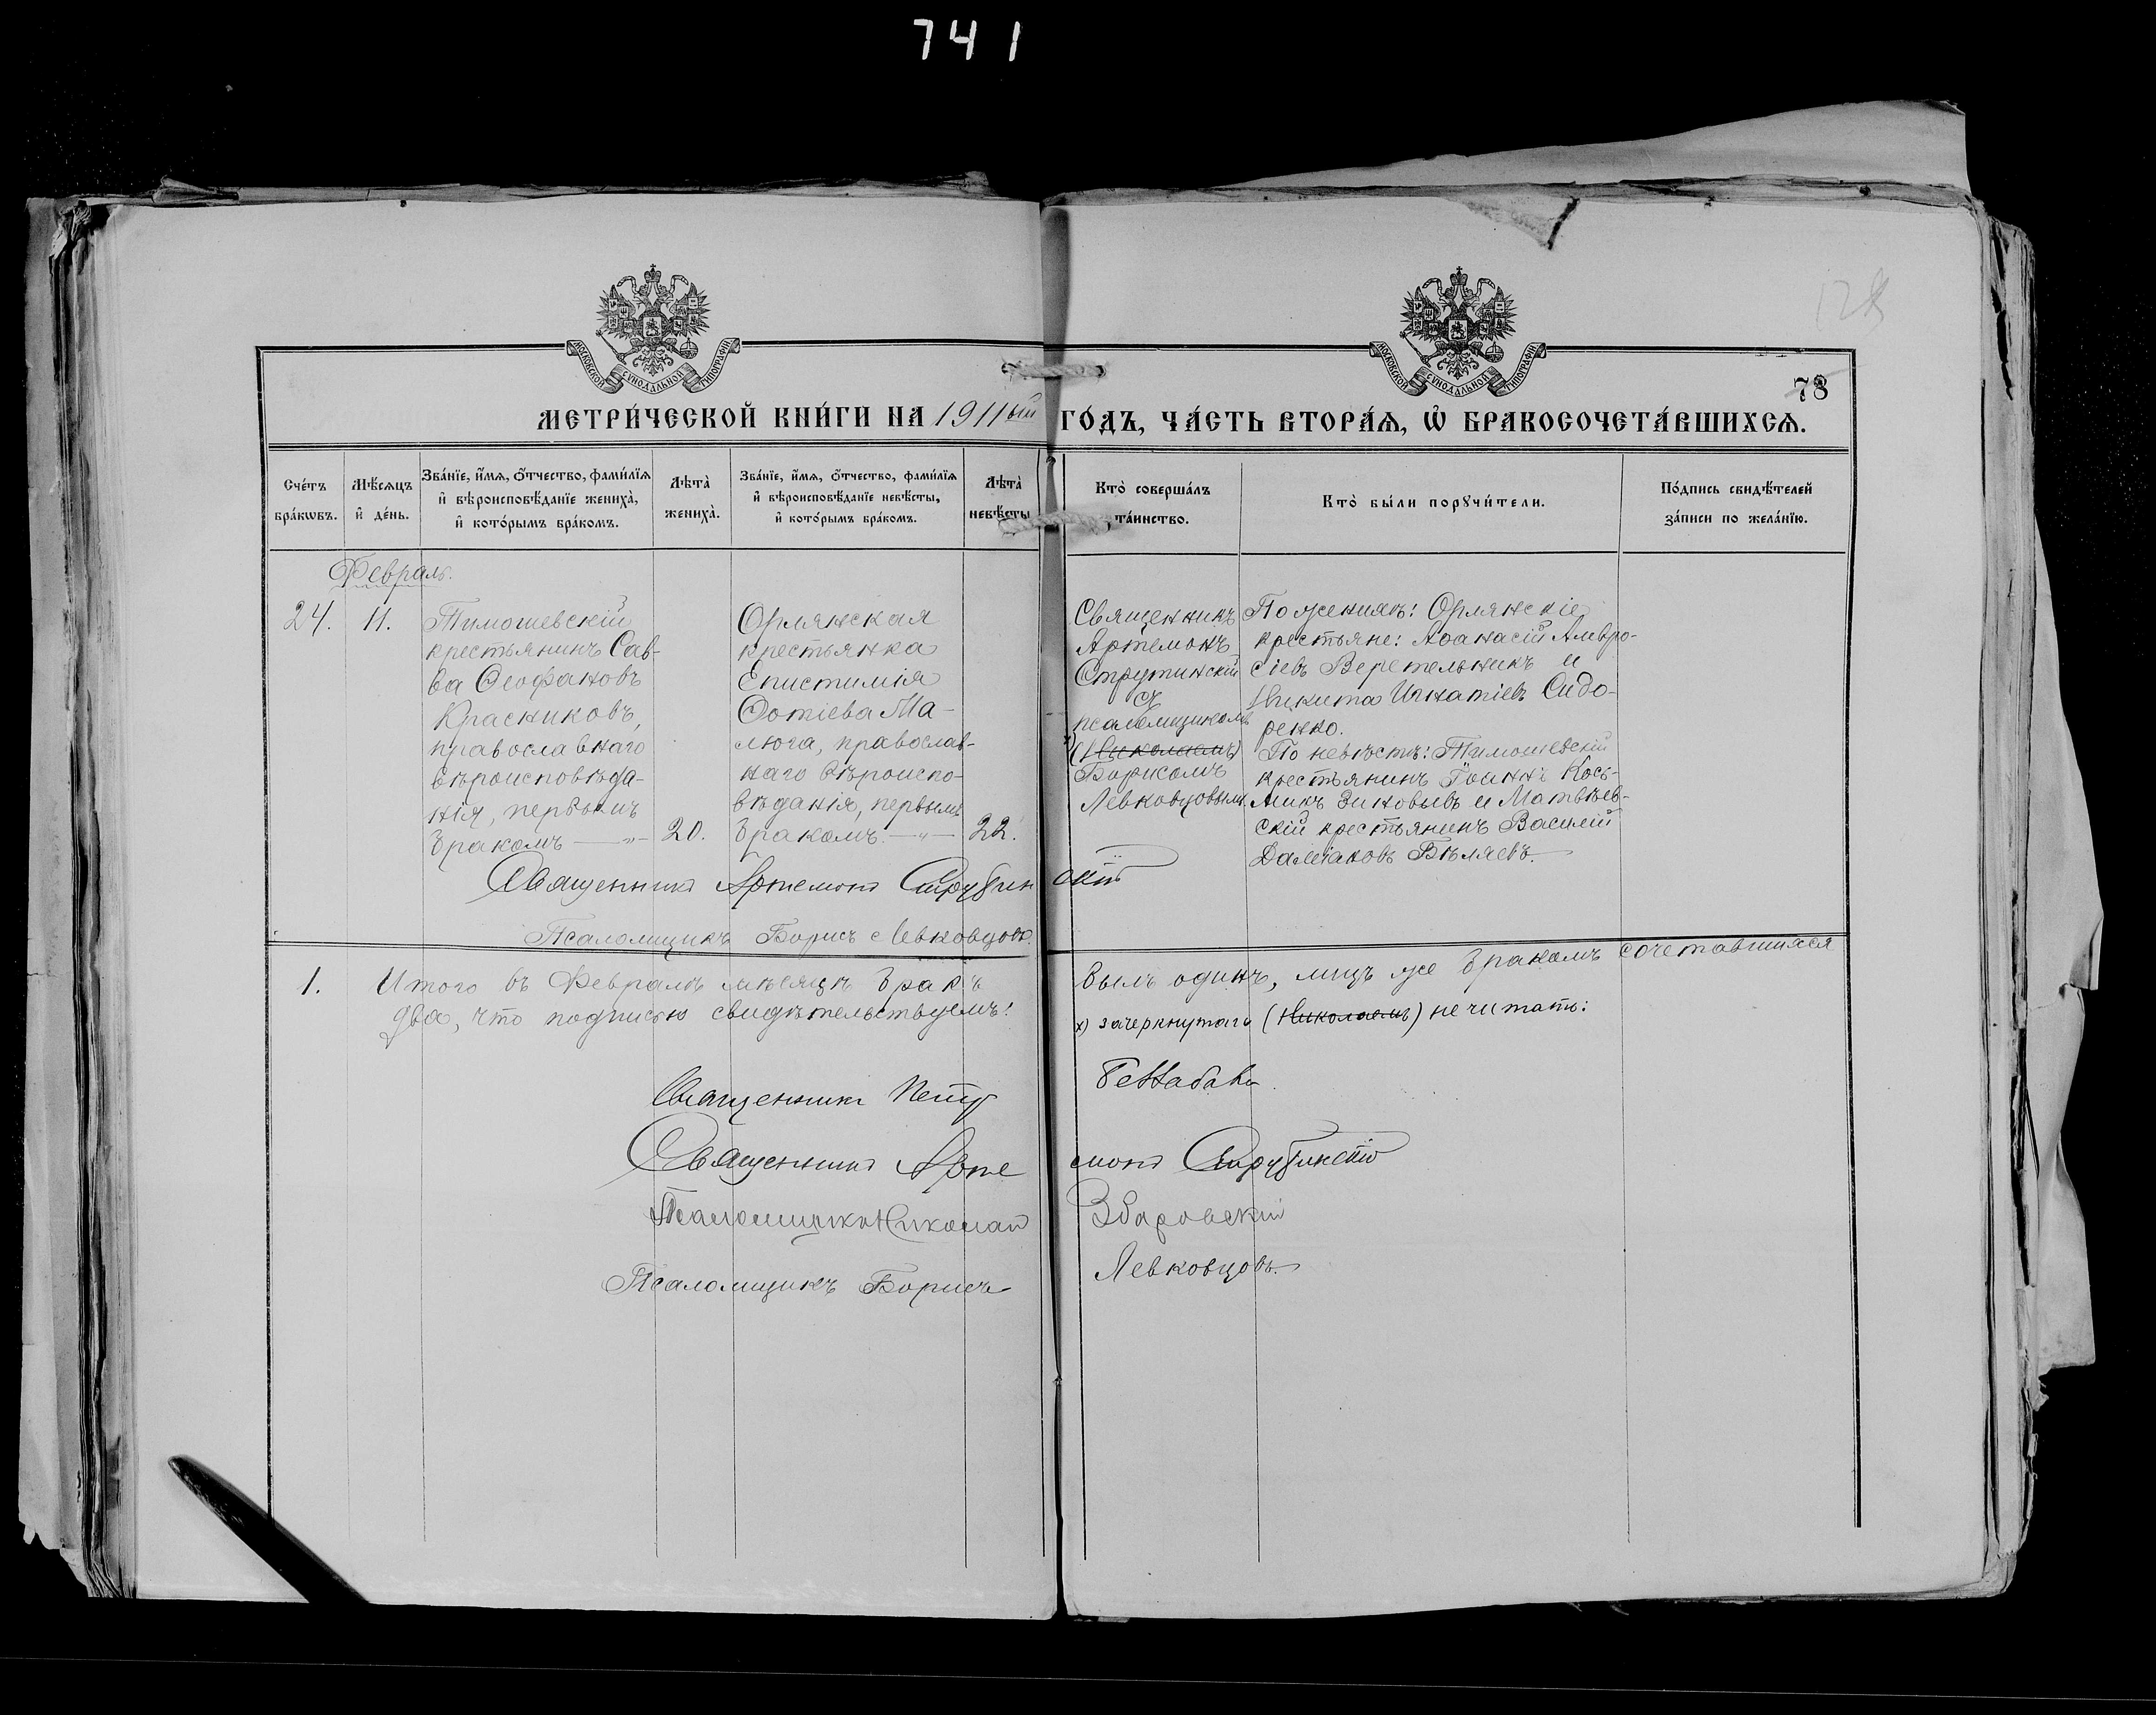 741
128
МОСКОВСКОЙ СѴНОДАЛЬНОЙ ТИПОГРАФІИ
МОСКОВСКОЙ СѴНОДАЛЬНОЙ ТИПОГРАФІИ
78
МЕТРИ́ЧЕСКОЙ КНИ́ГИ НА 1911ый ГО́ДЪ, ЧА́СТЬ ВТОРА́Ѧ, Ѽ БРАКОСОЧЕТА́ВШИХСѦ.
Сче́тъ
бра́кѡвъ.
Мѣ́сѧцъ
и҆ де́нь.
Зва́нїе, и҆́мѧ, ѻ҆́тчество, фами́лїѧ
и҆ вѣроисповѣ́данїе жениха̀,
и҆ кото́рымъ бра́комъ.
Лѣта̀
жениха̀.
Зва́нїе, и҆́мѧ, ѻ҆́тчество, фами́лїѧ
и҆ вѣроисповѣ́данїе невѣ́сты,
и҆ кото́рымъ бра́комъ.
Лѣта̀
невѣ́сты
Кто̀ соверша́лъ
та́инство.
Кто̀ бы́ли порꙋчи́тели.
По́дпись свидѣ́телей
за́писи по жела́нїю.
Февраль.
24.
11.
Тимошевскій
крестьянинъ Сав-
ва Ѳеофановъ
Красниковъ,
православнаго
вѣроисповѣда-
нія, первымъ
бракомъ —„—
20.
Орлянская
крестьянка
Епистимія
Фотіева Ма-
люга, православ-
наго вѣроиспо-
вѣданія, первымъ
бракомъ. —„—
22.
Священникъ
Артемонъ
Струтинскій
съ
псаломщикомъ
х) (Николаемъ)
Борисомъ
Левковцовымъ.
По женихѣ: Орлянскіе
крестьяне: Аѳанасій Амвро-
сіевъ Веретельникъ и
Никита Игнатіевъ Сидо-
ренко.
По невѣстѣ: Тимошевскій
крестьянинъ Іоаннъ Кось-
минъ Зиновьевъ и Матвѣев-
скій крестьянинъ Василій
Даміановъ Бѣляевъ.
Священникъ Артемонъ Струтинскій
Псаломщикъ Борисъ Левковцовъ.
1. Итого въ Февралѣ мѣсяцѣ бракъ былъ одинъ, лицъ же бракомъ сочетавшихся
два, что подписью свидѣтельствуемъ:
х) зачеркнутаго (Николаемъ) не читать:
Священникъ Петръ
Священникъ Артемонъ Струтинскій
Псаломщикъ Николай Збаровскій
Псаломщикъ Борисъ Левковцовъ.